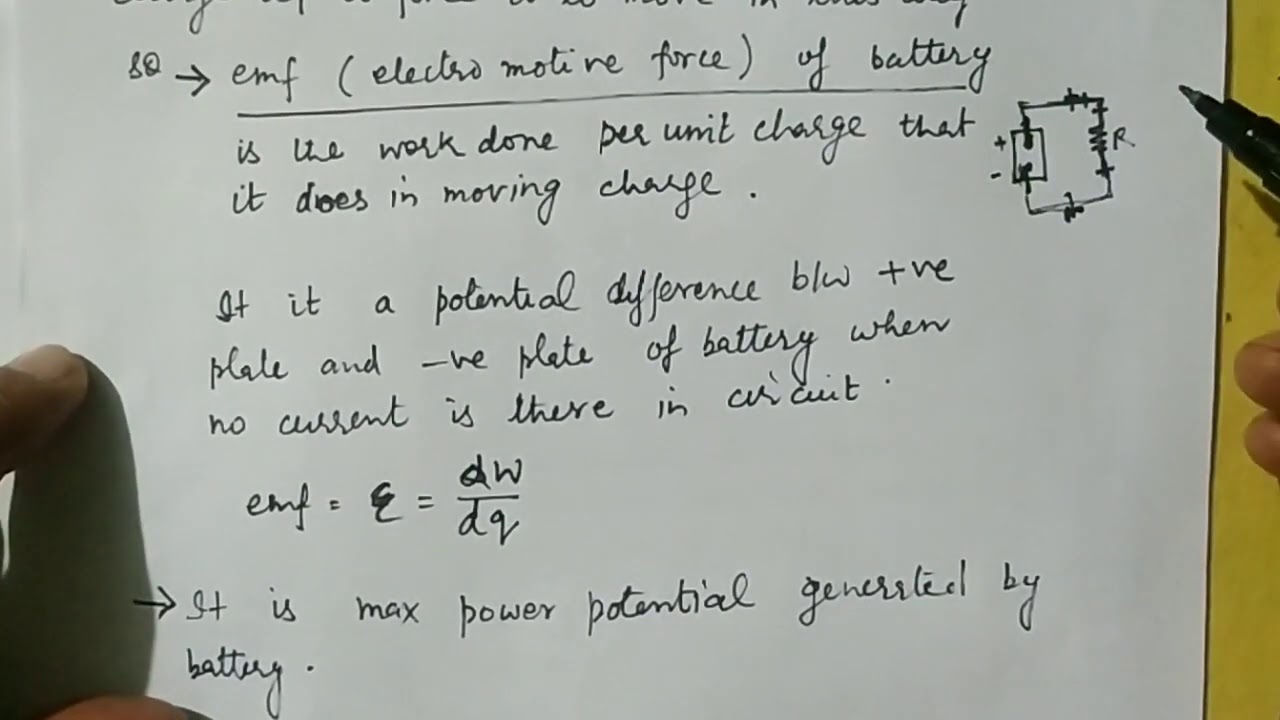 SO → emf (electro motive force) of battery
is the work done per unit charge that
it does in moving charge .
+
-
R
It it a potential difference b/w +ve
plate and -ve plate of battery when
no current is there in circuit .
emf = ε = dw/dq
→ It is max power potential generated by
battery .